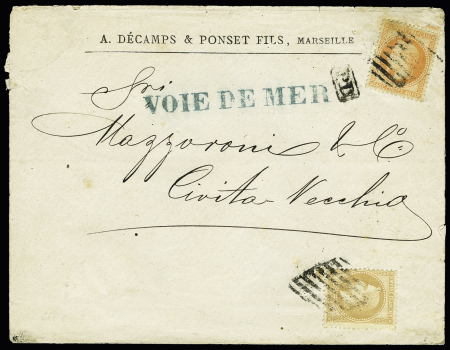 A. DÉCAMPS & PONSET FILS, MARSEILLE
Sri
VOIE DE MER
PD
Mazzaroni & Co.
Civita-Vecchia